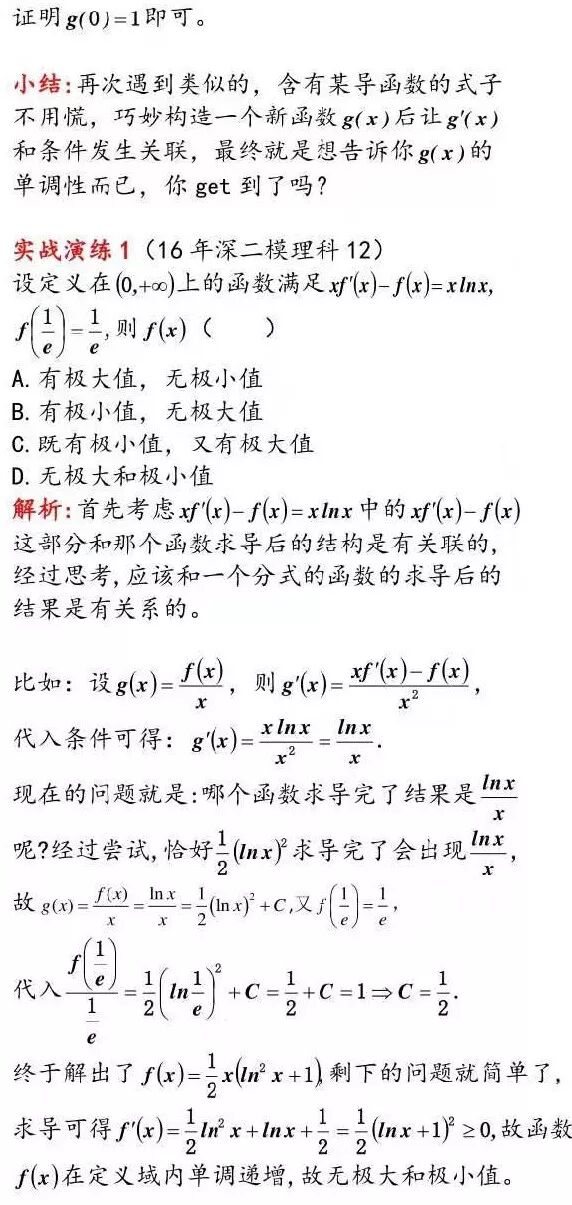 证明g(0)=1即可。
小结:再次遇到类似的，含有某导函数的式子
不用慌，巧妙构造一个新函数g(x)后让g′(x)
和条件发生关联，最终就是想告诉你g(x)的
单调性而已，你get到了吗?
实战演练1（16年深二模理科12）
设定义在(0,+∞)上的函数满足xf′(x)−f(x)=xlnx,
f(1/e)=1/e,则f(x)（　　）
A.有极大值，无极小值
B.有极小值，无极大值
C.既有极小值，又有极大值
D.无极大和极小值
解析:首先考虑xf′(x)−f(x)=xlnx中的xf′(x)−f(x)
这部分和那个函数求导后的结构是有关联的,
经过思考,应该和一个分式的函数的求导后的
结果是有关系的。
比如：设g(x)=f(x)/x，则g′(x)=(xf′(x)−f(x))/x²，
代入条件可得：g′(x)=xlnx/x²=lnx/x.
现在的问题就是:哪个函数求导完了结果是lnx/x
呢?经过尝试,恰好1/2(lnx)²求导完了会出现lnx/x,
故g(x)=f(x)/x=lnx/x=1/2(lnx)²+C,又f(1/e)=1/e,
代入f(1/e)/(1/e)=1/2(ln1/e)²+C=1/2+C=1⇒C=1/2.
终于解出了f(x)=1/2x(ln²x+1),剩下的问题就简单了,
求导可得f′(x)=1/2ln²x+lnx+1/2=1/2(lnx+1)²≥0,故函数
f(x)在定义域内单调递增,故无极大和极小值。